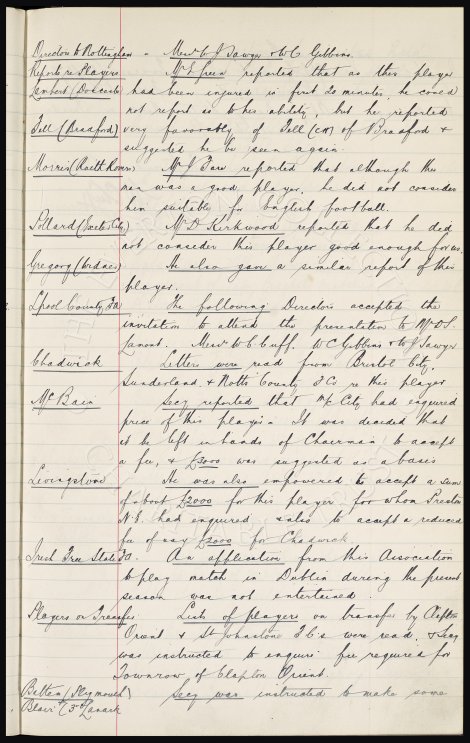 Directors to Nottingham - Messrs W J Sawyer & W C Gibbins.
Reports re Players Mr E Green reported that as this player
Lambert (Doncaster) had been injured in first 20 minutes he could
not report as to his ability, but he reported
Tell (Bradford) very favorably of Tell (CH) of Bradford &
suggested he be seen again.
Morris (Raith Rovers) Mr J Fare reported that although this
man was a good player, he did not consider
him suitable for English football.
Pollard (Exeter City) Mr D Kirkwood reported that he did
not consider this player good enough for us.
Gregory (Widnes) He also gave a similar report of this
player.
Lpool County F.A. The following Directors accepted the
invitation to attend the presentation to Mr D.S.
Lamont. Messrs W C Cuff, W C Gibbins & W J Sawyer
Chadwick Letters were read from Bristol City,
Sunderland & Notts County F Cs re this player
McBain Secy reported that M/c City had enquired
price of this player. It was decided that
it be left in hands of Chairman to accept
a fee, & £3000 was suggested as a basis
Livingstone He was also empowered to accept a sum
of about £2000 for this player for whom Preston
N.E. had enquired & also to accept a reduced
fee of say £2000 for Chadwick
Irish Free State F.A. An application from this Association
to play match in Dublin during the present
season was not entertained.
Players on Transfer Lists of players on transfer by Clapton
Orient & St Johnstone F.C's were read, & Secy
was instructed to enquire fee required for
Townrow of Clapton Orient.
Batten (Plymouth) Secy was instructed to make some
Blair (3rd Lanark